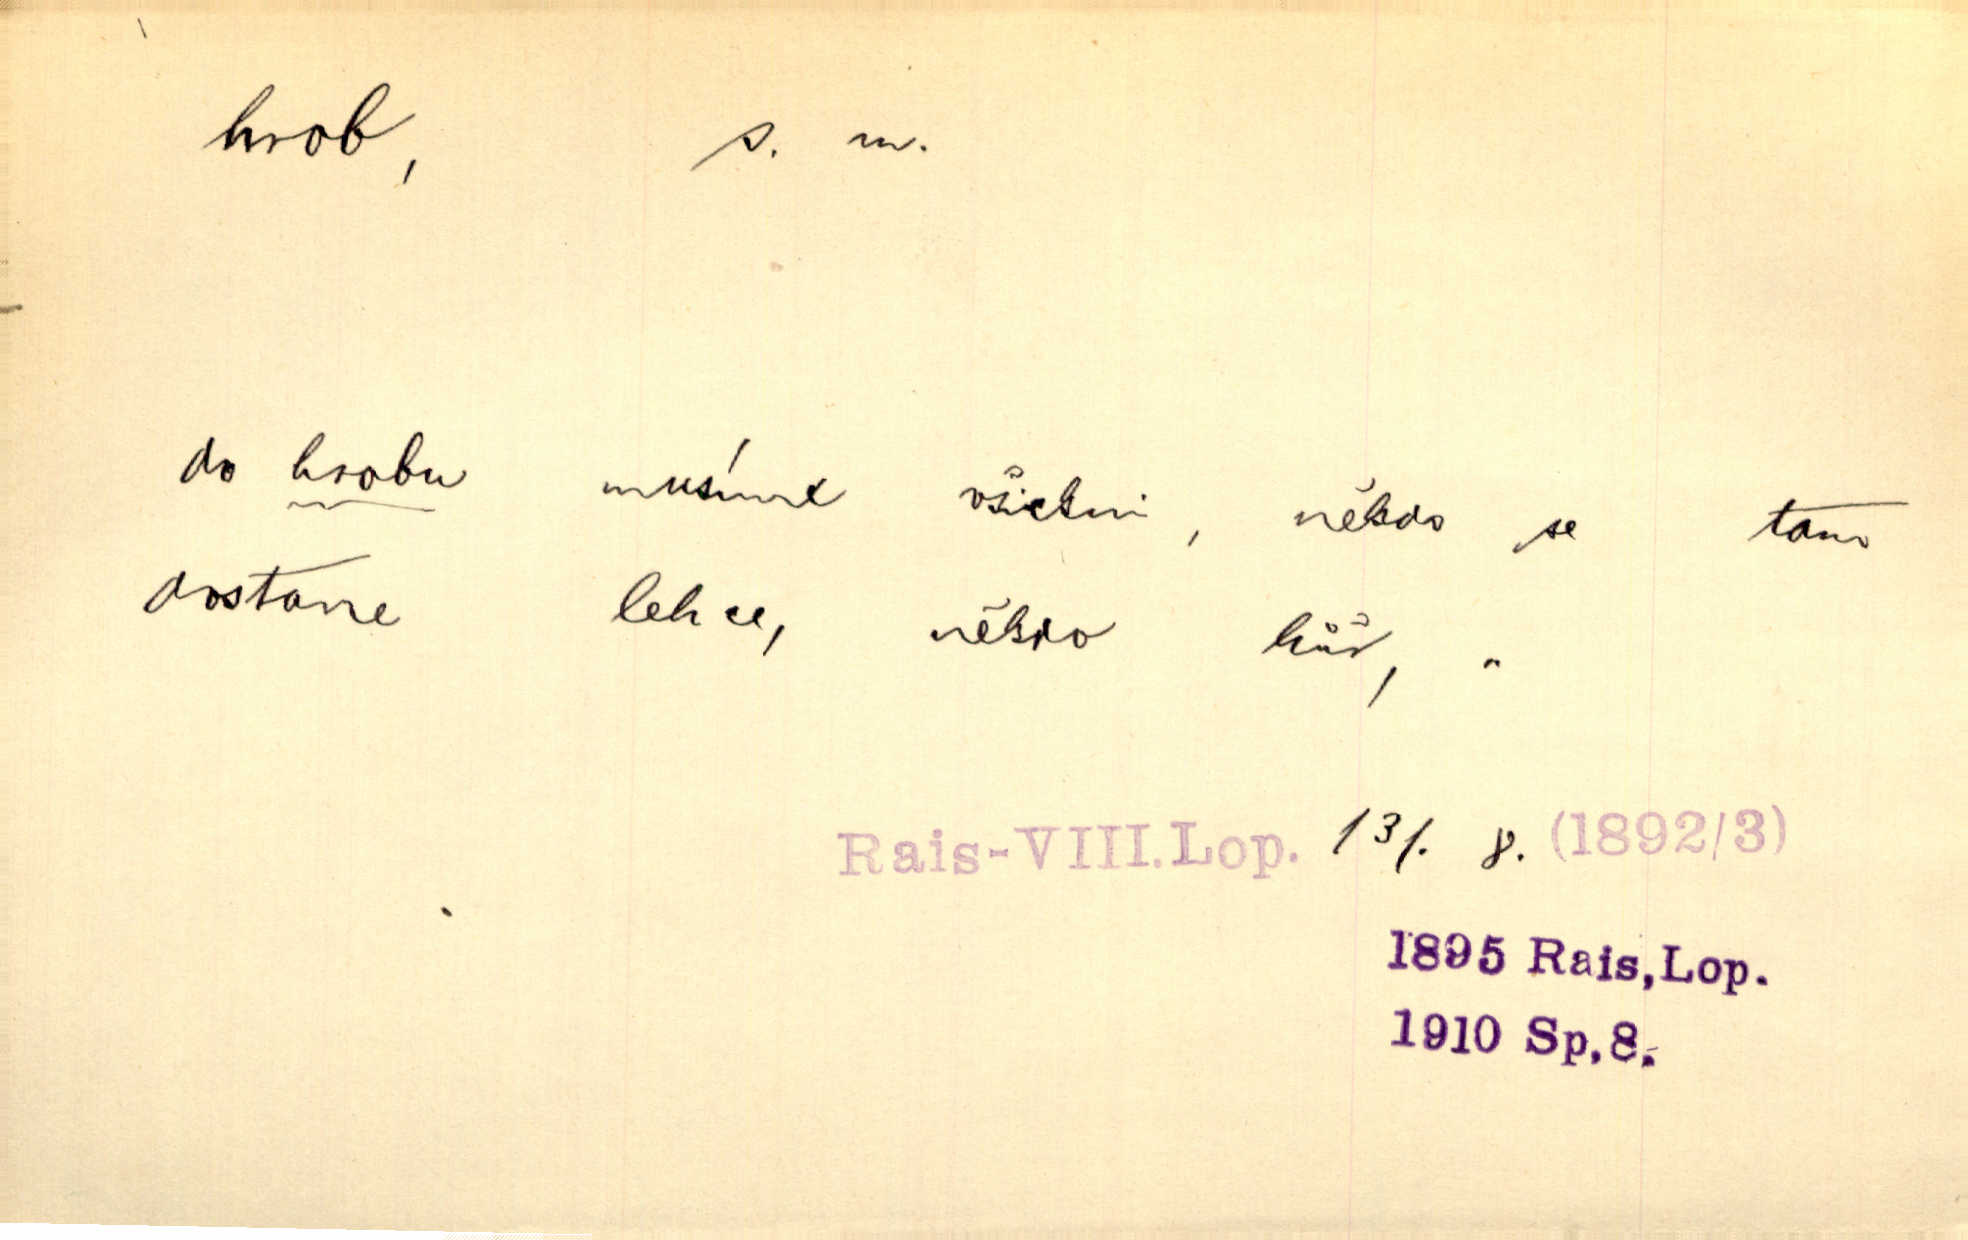 hrob, s. m.
do hrobu musíme všickni, někdo se tam
dostane lehce, někdo hůř, "
Rais-VIII.Lop. 131. 8. (1892/3)
1895 Rais,Lop.
1910 Sp.8.